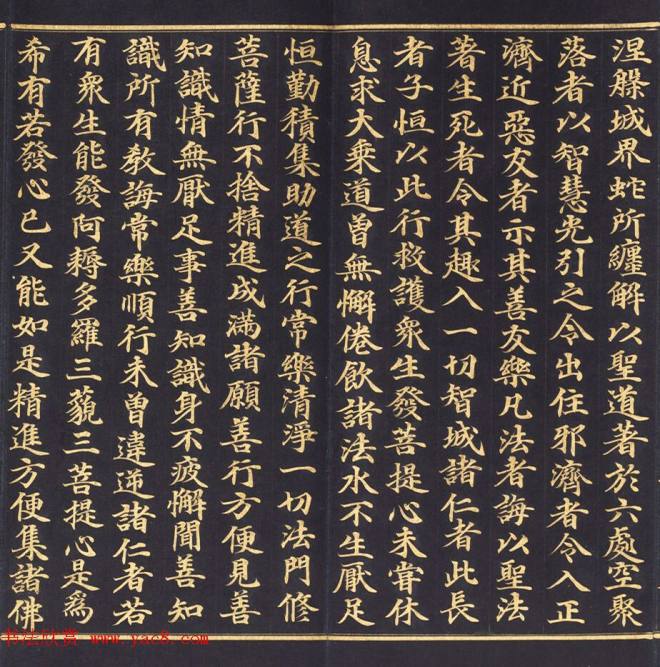 涅槃城界蛇所纏解以聖道著於六處空聚
落者以智慧光引之令出住邪濟者令入正
濟近惡友者示其善友樂凡法者誨以聖法
著生死者令其趣入一切智城諸仁者此長
者子恒以此行救護衆生發菩提心未甞休
息求大乗道曽無懈倦飲諸法水不生厭足
恒勤積集助道之行常樂清淨一切法門修
菩薩行不捨精進成滿諸願善行方便見善
知識情無厭足事善知識身不疲懈聞善知
識所有教誨常樂順行未曽違逆諸仁者若
有衆生能發阿耨多羅三藐三菩提心是爲
希有若發心已又能如是精進方便集諸佛
书法欣赏 www.yac8.com